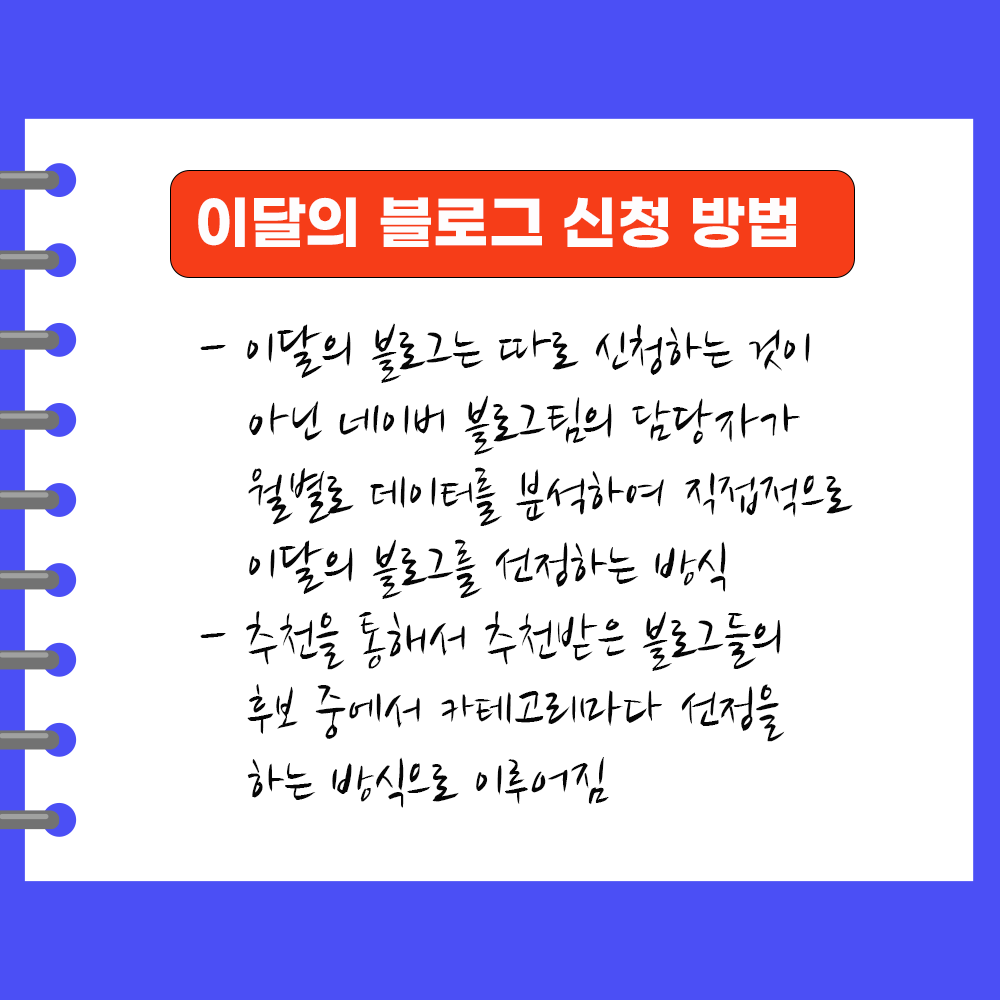 이달의 블로그 신청 방법
- 이달의 블로그는 따로 신청하는 것이
아닌 네이버 블로그팀의 담당자가
월별로 데이터를 분석하여 직접적으로
이달의 블로그를 선정하는 방식
- 추천을 통해서 추천받은 블로그들의
후보 중에서 카테고리마다 선정을
하는 방식으로 이루어짐